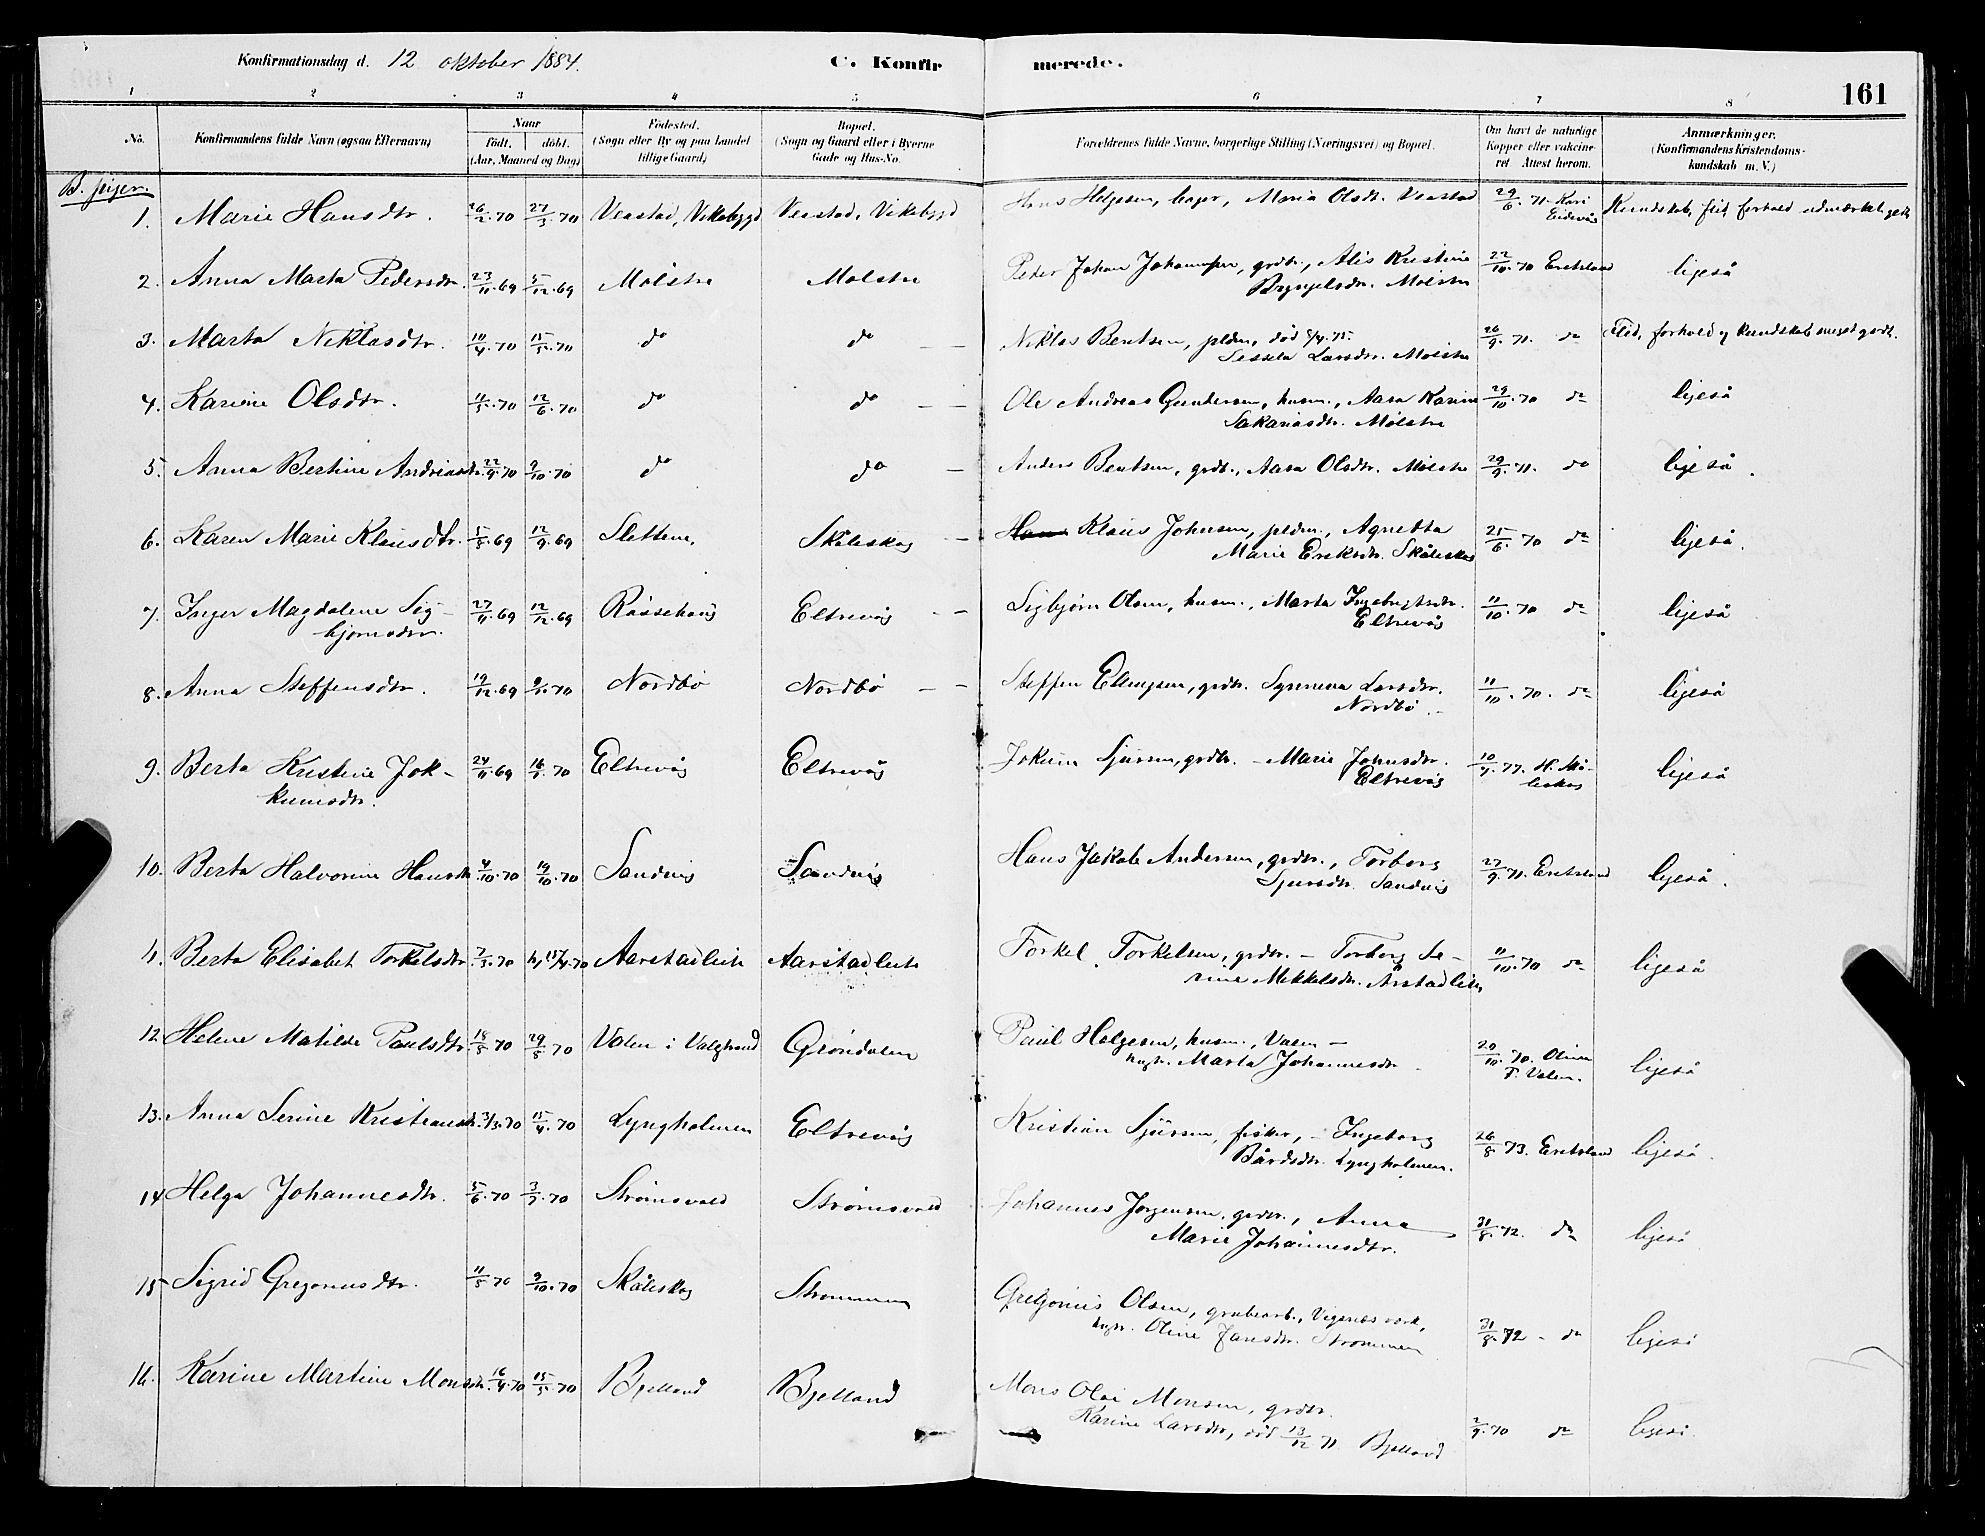 Konfirmationsdag d. 12 oktober 1884. C. Konfirmerede. 161
1 2 3 4 5 6 7 8
No. Konfirmandens fulde Navn (ogsaa Efternavn) Naar født. døbt. (Aar, Maaned og Dag) Fødested. (Sogn eller By og paa Landet tillige Gaard) Bopæl. (Sogn og Gaard eller i Byerne Gade og Hus-No. Forældrenes fulde Navne, borgerlige Stilling (Næringsvei) og Bopæl. Om havt de naturlige Kopper eller vakcineret. Attest herom. Anmærkninger. (Konfirmandens Kristendomskundskab m. V.)
B. piger.
1. Marie Hansdtr. 26/2.70 27/3.70 Veastad, Vikebygd Veastad, Vikebygd Hans Helgesen, Maria Olsdr. Veastad 29/6.71 Kari Eidevåg Kundskab, flid, forhold udmærket godt
2. Anna Marta Pedersdtr. 23/11.69 5/12.69 Mølstre Mølstre Peder Johan Johannesen, grdbr., Alis Kristine
Brynjelsdr. Mølstre 22/10.70 Eretsland ligeså
3. Marta Niklasdtr. 10/4.70 15/5.70 do do Niklas Bentsen, pldm, død 5/4.75.
Sessela Larsdtr. Mølstre 26/9.71. do Flid, forhold og kundskab meget godt.
4. Karine Olsdtr. 11/5.70 12/6.70 do do Ole Andreas Gundersen, husm., Aasa Karine
Sakariasdtr. Mølstre 29/10.70 do ligeså
5. Anna Bertine Andreasdtr. 22/9.70 9/10.70 do do Anders Bentsen, grdbr., Aasa Olsdtr. Mølstre 29/9.71. do ligeså.
6. Karen Marie Klausdtr. 5/8.69 12/9.69 Slettene. Skåleskog Klaus Johnsen, pldm., Agnetta
Marie Eriksdtr. Skåleskog 25/6.70 do ligeså.
7. Inger Magdalene Sigbjørnsdtr. 27/11.69 12/12.69 Røssehaug Eltrevåg Sigbjørn Olsen, husm., Marta Ingebrigtsdtr.
Eltrevåg 11/10.70 do ligeså
8. Anna Steffensdtr. 19/12.69 9/1.70 Nordbø Nordbø Steffen Ellingsen, grdbr. Synneva Larsdtr.
Nordbø. 11/10.70. do ligeså
9. Berta Kristine Jokumsdtr. 24/11.69 16/1.70 Eltrevåg Eltrevåg Jokum Sjursen, grdbr. – Marie Johnsdtr.
Eltrevåg 10/9.77. H. Skåleskog ligeså
10. Berta Halvorine Hansdtr. 4/10.70 19/10.70 Sandvig Sandvig Hans Jakob Andersen, grdbr., Torborg
Sjursdtr. Sandvig 27/9.71. Eretsland ligeså.
11. Berta Elisabet Torkelsdtr. 7/3.70 17/4.70 Aarstadlien Aarstadlien Torkel Torkelsen, grdbr. – Torborg Serine Mikkelsdtr. Årstadlien 11/10.70 do ligeså
12 Helene Matilde Paulsdtr. 18/5.70 29/5.70 Valen i Valestrand Grøndalen Paul Helgesen, husm., Valen –
hustr. Marta Johannesdtr. 20/10.70. Oline T. Valen. ligeså
13. Anna Serine Kristiansdtr. 3/3.70 15/4.70 Lyngholmen Eltrevåg Kristian Sjursen, fisker, – Ingeborg
Bårdsdtr. Lyngholmen. 26/8.73. Eretsland ligeså.
14 Helga Johannesdtr. 5/6.70 3/7.70 Strømsvold Strømsvold Johannes Jørgensen, grdbr., Anna
Marie Johannesdtr. 31/8.72. do ligeså.
15 Sigrid Gregoriusdtr. 11/5.70 9/10.70 Skåleskog Strømmen Gregorius Olsen, grubearb., Vigsnæs værk,
hustr. Oline Jansdtr. Strømmen 31/8.72 – do ligeså
16. Karine Martine Monsdtr. 16/4.70 15/5.70 Bjelland Bjelland Mons Olai Monsen, grdbr.
Karine Larsdtr, død 13/12 71 Bjelland 2/9.70 do ligeså.